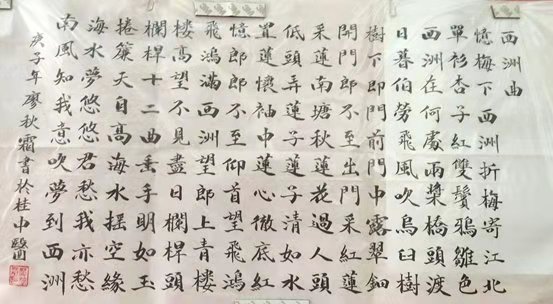 西洲曲
憶梅下西洲折梅寄江北
單衫杏子紅雙鬢鴉雛色
西洲在何處兩槳橋頭渡
日暮伯勞飛風吹烏臼樹
樹下即門前門中露翠鈿
開門郎不至出門采紅蓮
采蓮南塘秋蓮花過人頭
低頭弄蓮子蓮子清如水
置蓮懷袖中蓮心徹底紅
憶郎郎不至仰首望飛鴻
飛鴻滿西洲望郎上青樓
樓高望不見盡日欄桿頭
欄桿十二曲垂手明如玉
捲簾天自高海水搖空緣
海水夢悠悠君愁我亦愁
南風知我意吹夢到西洲
庚子年廖秋霜書於桂中醫